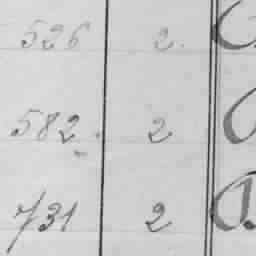 526 2.
582. 2
731 2